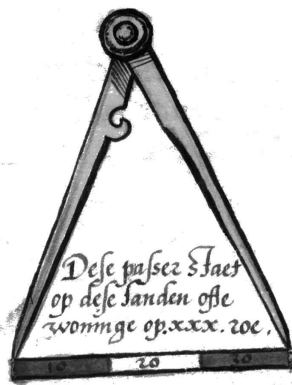 Dese passer staet
op dese landen ofte
woninge op.xxx.roe.
10 20 30